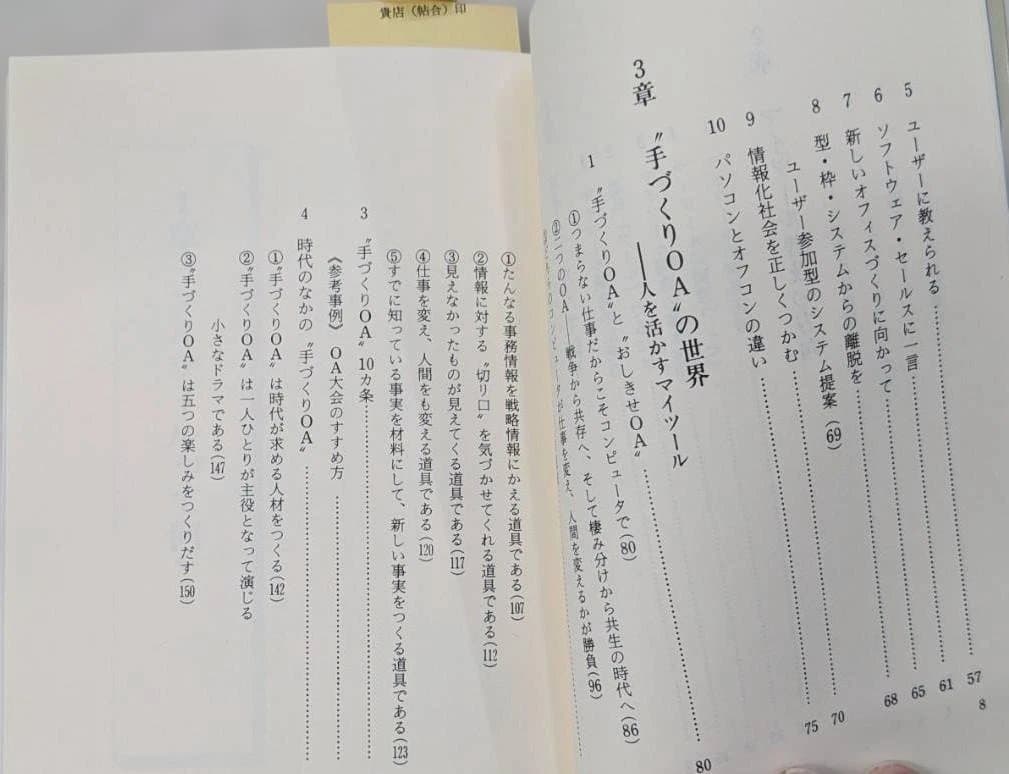 貴店（帖合）印
8
5 ユーザーに教えられる……………57
6 ソフトウェア・セールスに一言……………61
7 新しいオフィスづくりに向かって……………65
8 型・枠・システムからの離脱を……………68
ユーザー参加型のシステム提案(69)
9 情報化社会を正しくつかむ……………70
10 パソコンとオフコンの違い……………75
3章 〝手づくりOA〟の世界
――人を活かすマイツール
1 〝手づくりOA〟と〝おしきせOA〟……………80
①つまらない仕事だからこそコンピュータで(80)
②二つのOA――戦争から共存へ、そして棲み分けから共生の時代へ(86)
コンピュータが仕事を変え、人間を変えるかが勝負(96)
①たんなる事務情報を戦略情報にかえる道具である(107)
②情報に対する〝切り口〟を気づかせてくれる道具である(112)
③見えなかったものが見えてくる道具である(117)
④仕事を変え、人間をも変える道具である(120)
⑤すでに知っている事実を材料にして、新しい事実をつくる道具である(123)
3 〝手づくりOA〟10カ条……………
《参考事例》 OA大会のすすめ方……………
4 時代のなかの〝手づくりOA〟……………
①〝手づくりOA〟は時代が求める人材をつくる(142)
②〝手づくりOA〟は一人ひとりが主役となって演じる
小さなドラマである(147)
③〝手づくりOA〟は五つの楽しみをつくりだす(150)